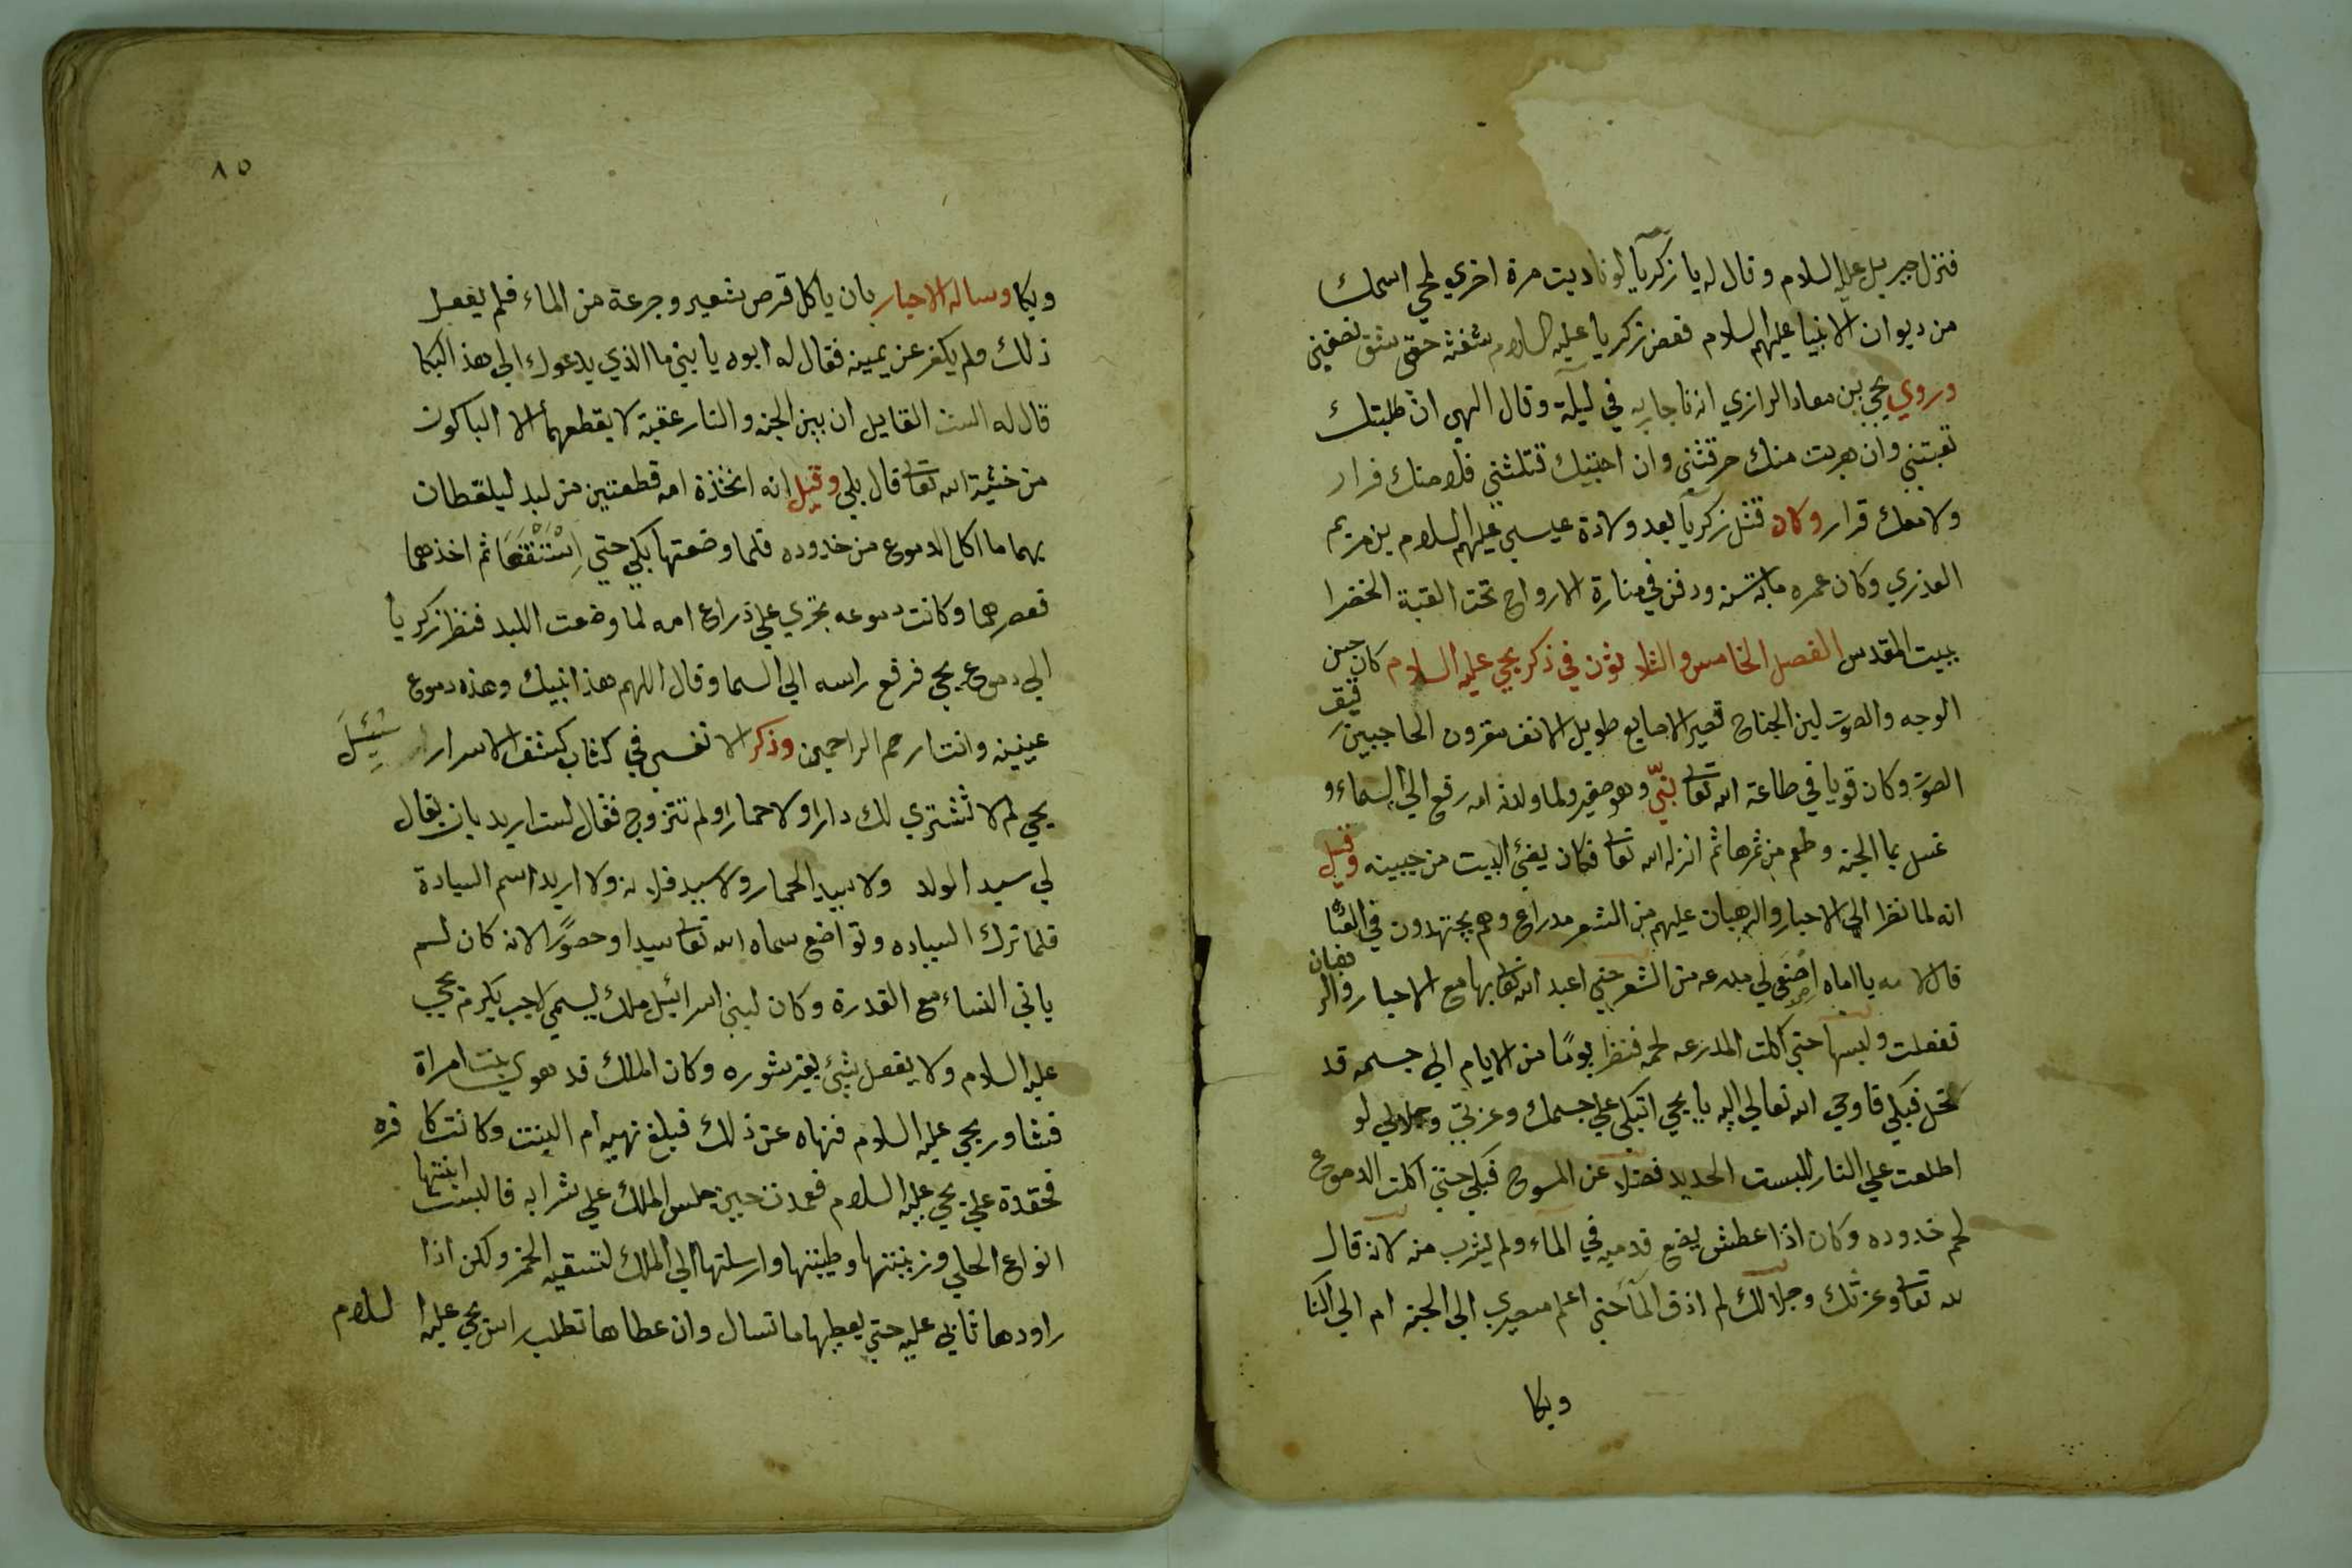 فنزل جبريل عليه السلام وقال له يا زكريا لو ناديت مرة اخري لمحي اسمك
من ديوان الانبيا عليهم السلام فعض زكريا عليه السلام شفته حتي شق نصفين
وروي يحيي بن معاد الرازي انه ناجا ربه في ليلة وقال الهي ان طلبتك
تعبتني وان هربت منك حرقتني وان احببتك قتلتني فلا منك فرار
ولا معك قرار وكان قتل زكريا بعد ولادة عيسي عليهم السلام بن مريم
العذري وكان عمره ماية سنة ودفن في منارة الارواح تحت القبة الخضرا
ببيت المقدس الفصل الخامس والثلاثون في ذكر يحيي عليه السلام كان حسن
الوجه والصوت لين الجناح قصير الاصابع طويل الانف مقرون الحاجبين رقيق
الصوت وكان قويا في طاعة الله تعالى نبي وهو صغير ولما ولدته امه رفع الي السماء و
غسل بما الجنة وطعم من ثمرها ثم انزله الله تعالى فكان يضئ البيت من جبينه وقيل
انه لما نظر الي الاحبار والرهبان عليهم من الشعر مدراع وهم يجتهدون في
قال لامه يا اماه اصنعي لي مدرعه من الشعر حتي اعبد الله تعالى بها مع الاحبار والرهبان
ففعلت ولبسها حتي اكلت المدرعه لحمه فنظر يوما من الايام الي جسمه قد
نحل فبكي فاوحي الله تعالي اليه يا يحيي اتبكي علي جسمك وعزتي وجلالي لو
اطلعت علي النار للبست الحديد فضلا عن المسوح فبكي حتي اكلت الدموع
لحم خدوده وكان اذا عطش يضع قدميه في الماء ولم يشرب منه لانه قال
لله تعالى وعزتك وجلالك لم اذق الماء حتي اعلم مصيري الي الجنة ام الي النا
وبكا
٨٥
وبكا وساله الاحبار بان ياكل قرص شعير وجرعة من الماء فلم يفعل
ذلك ولم يكفر عن يمينه فقال له ابوه يا بني ما الذي يدعوك الي هذا البكا
قال له الست القايل ان بين الجنة والنار عقبة لا يقطعها الا الباكون
من خشية الله تعالى قال بلي وقيل انه اتخذة امه قطعتين من لبد ليلقطان
بهما ما اكل الدموع من خدوده فلما وضعتها بكي حتي استنقعا ثم اخذهما
فعصرهما وكانت دموعه تجري علي ذراع امه لما وضعت اللبد فنظر زكريا
الي دموع يحيي فرفع راسه الي السما وقال اللهم هذا نبيك وهذه دموع
عينيه وانت ارحم الراحمين وذكر الانفسي في كتاب كشف الاسرار سئل
يحيي لم لا تشتري لك دارا ولا حمارا ولم تتزوج فقال لست اريد بان يقال
لي سيد الولد ولا سيد الحمار ولا سيد فلانه ولا اريد اسم السيادة
فلما ترك السياده وتواضع سماه الله تعالى سيدا وحصورا لانه كان لم
ياتي النساء مع القدرة وكان لبني اسرائيل ملك يسمي لاجب يكرم يحيي
عليه السلام ولا يفعل شئ بغير شوره وكان الملك قد هوي بنت امراة
فشاور يحيي عليه السلام فنهاه عن ذلك فبلغ نهيه ام البنت وكانت كافره
فحقدة علي يحيي عليه السلام فعمدت حين جلس الملك علي شرابه فالبست ابنتها
انواع الحلي وزينتها وطيبتها وارسلتها الي الملك لتسقيه الخمر ولكن اذا
راودها تابي عليه حتي يعطيها ما تسال وان عطاها تطلب راس يحيي عليه السلام